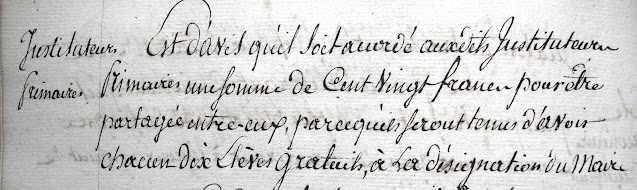 Instituteurs
Primaires
Est d'avis qu'il soit accordé auxdits Instituteurs
Primaires une somme de Cent vingt francs pour être
partagée entre-eux, parcequ'ils seront tenus d'avoir
chacun dix Elèves gratuits, à La désignation du Maire